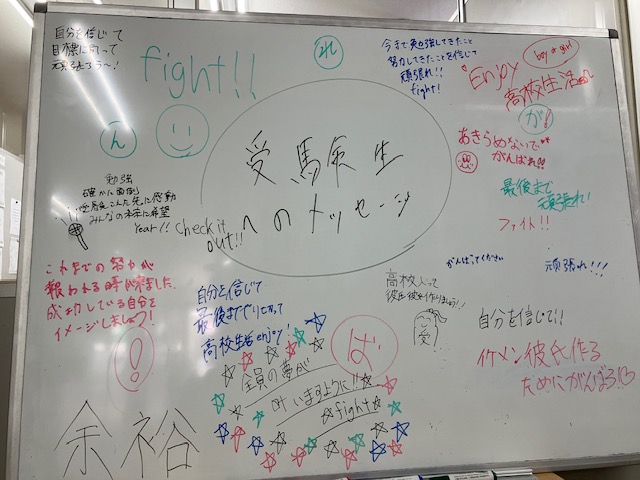 自分を信じて
目標に向って
頑張ろう〜!
fight!!
れ
今まで勉強してきたこと
努力してきたことを信じて
頑張れ!!
fight!
boy or girl
Enjoy
高校生活
が!
ん
受験生
へのメッセージ
あきらめないで
がんばれ!!
最後まで
頑張れ!
ファイト!!
勉強
確かに面倒
こえた先に感動
みんなの未来に希望
Year!! Check it
out!!
がんばってください
頑張れ!!!
これまでの努力が
報われる時が来ました
成功している自分を
イメージしましょう!
!
自分を信じて
最後までやりきって
高校生活enjoy!
高校入って
彼氏彼女作りましょう!!
受
ば
自分を信じて!!
イケメン彼氏作る
ためにがんばろう!♡
全員の夢が
叶いますように!!
fight
余裕